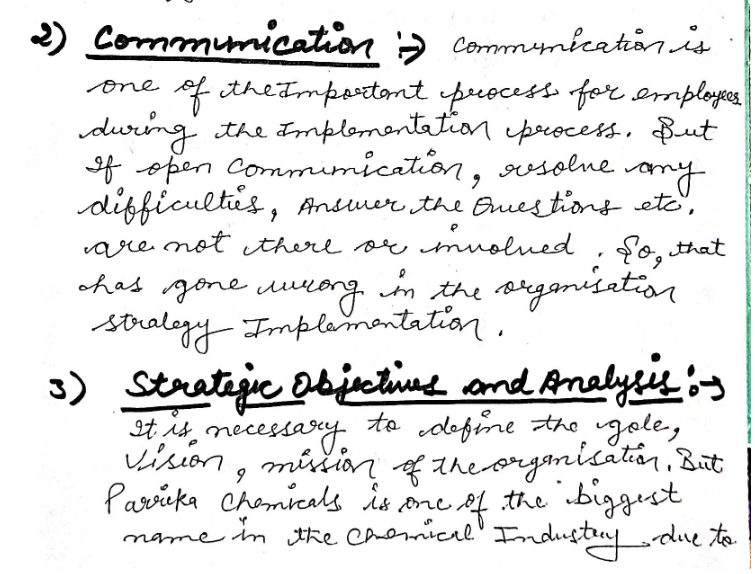 2) Communication :→ Communication is
one of the Important process for employees
during the Implementation process. But
If open Communication, resolve any
difficulties, Answer the Questions etc.
are not there or involved. So, that
has gone wrong in the organisation
strategy Implementation.
3) Strategic Objectives and Analysis :→
It is necessary to define the gole,
Vision, mission of the organisation. But
Parrika Chemicals is one of the biggest
name in the Chemical Industry due to